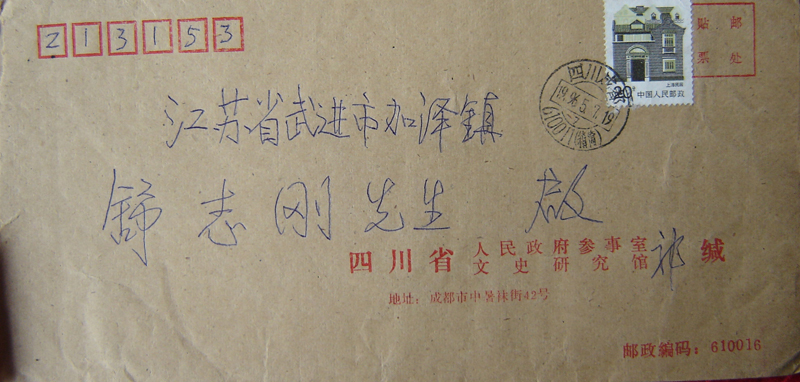 213153
贴 邮
票 处
20分
上海民居
中国人民邮政
四川成都
1996.5.7.19
610011
江苏省武进市加泽镇
舒志刚先生 启
四川省 人民政府参事室
文史研究馆 祁 缄
地址：成都市中暑袜街42号
邮政编码：610016